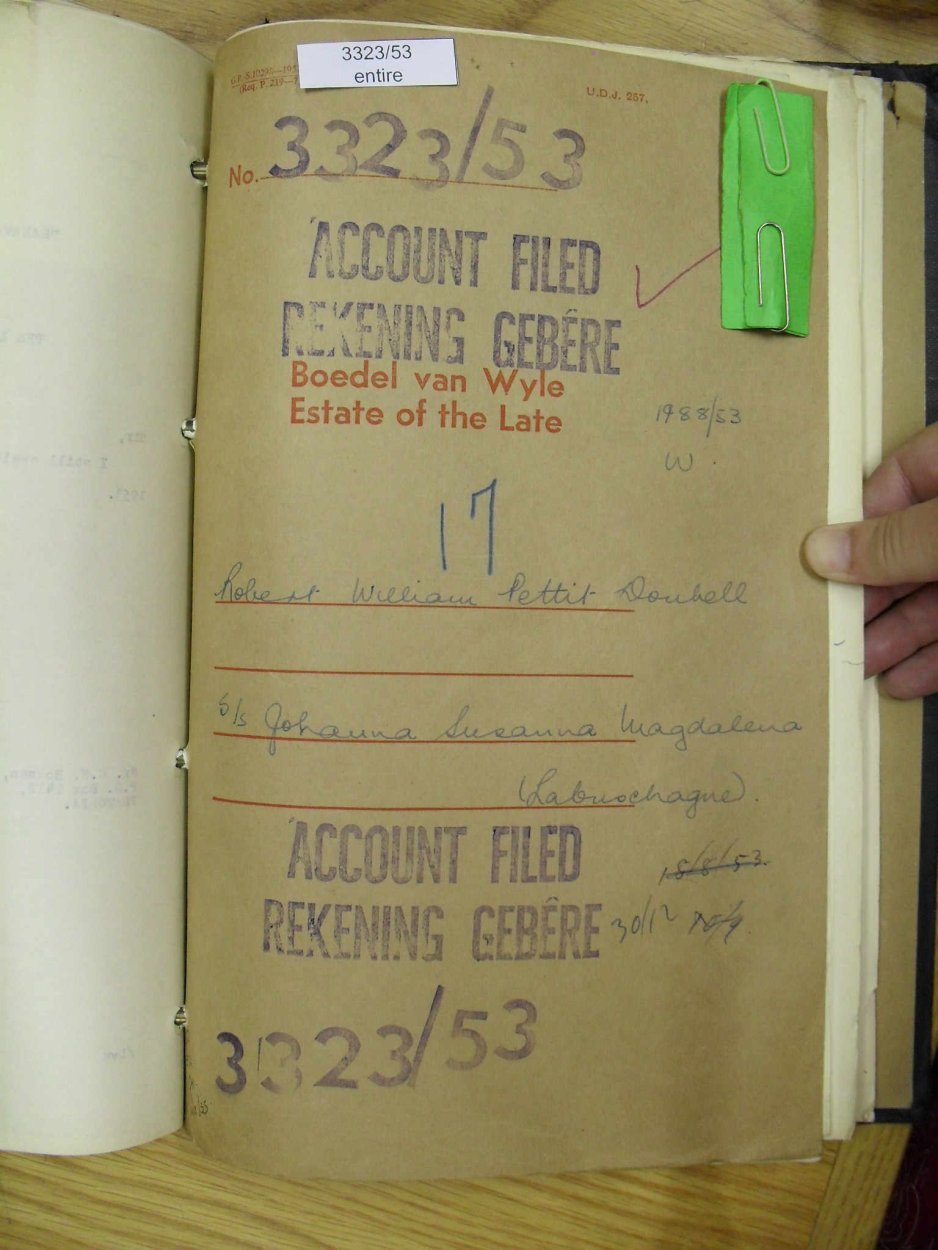 3323/53
entire
U.D.J. 257.
No. 3323/53
ACCOUNT FILED
REKENING GEBÊRE
Boedel van Wyle
Estate of the Late
1988/53
W.
17
Robert William Pettit Donhell
s/s Johanna Susanna Magdalena
(Labuschagne).
ACCOUNT FILED
15/8/53.
REKENING GEBÊRE
30/12
3323/53